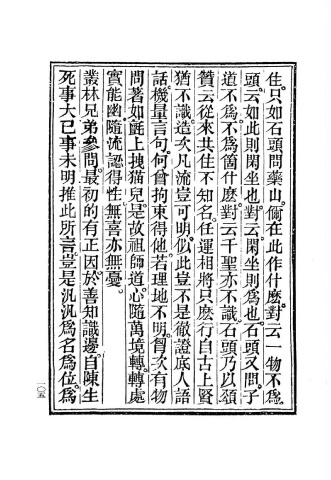 住。只如石頭問藥山。儞在此作什麼。對云一物不爲。
頭云。如此則閑坐也。對云。閑坐則爲也。石頭又問。子
道不爲。不爲箇什麼。對云千聖亦不識。石頭乃以頌
贊云從來共住不知名。任運相將只麼行。自古上賢
猶不識。造次凡流豈可明。似此豈不是徹證底人語
話。機量言句。何曾拘束得他。若理地不明。胷次有物
問著如毡上拽猫兒。是故祖師道。心隨萬境轉。轉處
實能幽。隨流認得性。無喜亦無憂。
叢林兄弟參問。最初的有正因。於善知識邊。自陳生
死事大。己事未明。推此所言。豈是汎汎爲名爲位。爲
一〇五